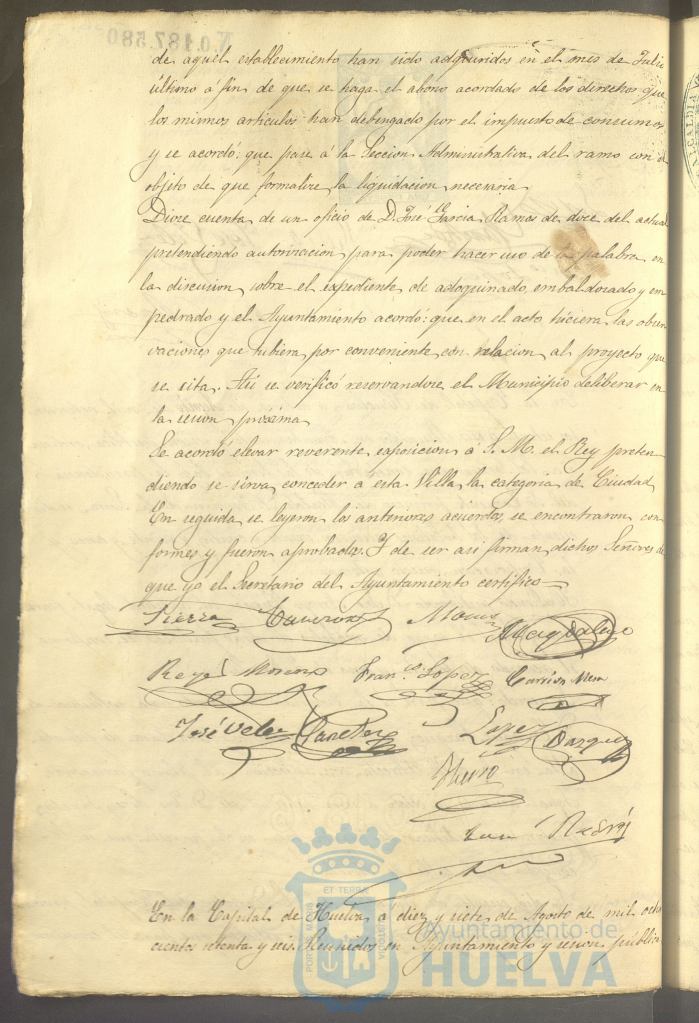 N.0.187.580
de aquel establecimiento han sido adquiridos en el mes de Julio
último á fin de que se haga el abono acordado de los derechos que
los mismos articulos han debengado por el impuesto de consumos
y se acordó: que pase á la Seccion Administrativa del ramo con el
objeto de que formalize la liquidacion necesaria
Diose cuenta de un oficio de D. José Garcia Ramos de doce del actual
pretendiendo autorizacion para poder hacer uso de la palabra en
la discusion sobre el espediente de adoquinado, embaldosado y em
pedrado y el Ayuntamiento acordó: que en el acto hiciera las obser
vaciones que tubiera por conveniente con relacion al proyecto que
se cita. Asi se verificó reservandose el Municipio deliberar en
la sesion próxima
Se acordó elevar reverente exposicion á S. M. el Rey preten
diendo se sirva conceder á esta Villa la categoria de Ciudad
En seguida se leyeron los anteriores acuerdos, se encontraron con
formes y fueron aprobados. Y de ser asi firman dichos Señores de
que yo el Secretario del Ayuntamiento certifico
Reyes Moreno Franco. Lopez Carrion Mesa
José Velez Sanchez Lopez Vazquez
En la Capital de Huelva á diez y siete de Agosto de mil ocho
cientos setenta y seis. Reunidos en Ayuntamiento y sesion pública
ET TERRÆ
PORTUS MARIS
CUSTODIA
Ayuntamiento de
HUELVA
ALCALDIA